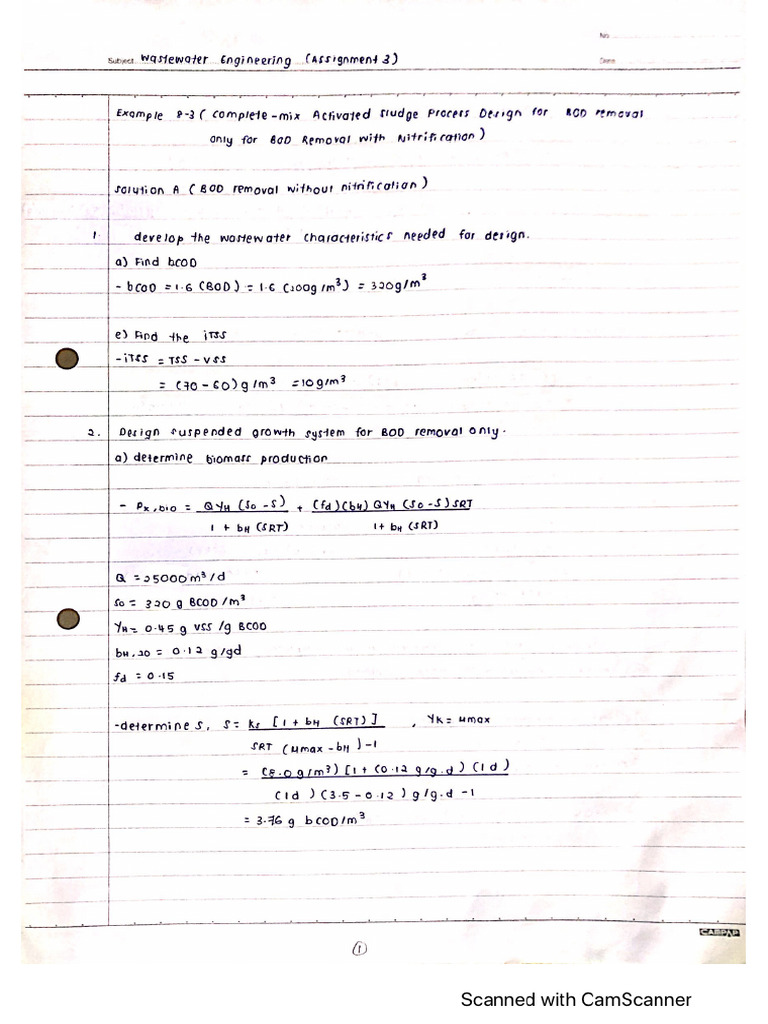 No.
Subject Wastewater Engineering (Assignment 3)
Date
Example 8-3 ( Complete-mix Activated Sludge Process Design for BOD removal
only for BOD Removal with Nitrification)
Solution A ( BOD removal without nitrification)
1. develop the wastewater characteristics needed for design.
a) Find bCOD
- bCOD = 1.6 (BOD) = 1.6 (200g/m³) = 320g/m³
e) Find the iTSS
- iTSS = TSS - VSS
= (70 - 60) g/m³ = 10g/m³
2. Design suspended growth system for BOD removal only.
a) determine biomass production
- Px,bio = QYH (So - S) + (fd)(bH) QYH (So - S) SRT
1 + bH (SRT) 1 + bH (SRT)
Q = 25000 m³/d
So = 320 g BCOD/m³
YH = 0.45 g VSS/g BCOD
bH,20 = 0.12 g/gd
fd = 0.15
- determine S, S = Ks [1 + bH (SRT)] , YK = μmax
SRT (μmax - bH) - 1
= (8.0 g/m³) [1 + (0.12 g/g.d) (1d)
(1d) (3.5 - 0.12) g/g.d - 1
= 3.76 g bCOD/m³
CAMPAP
1
Scanned with CamScanner